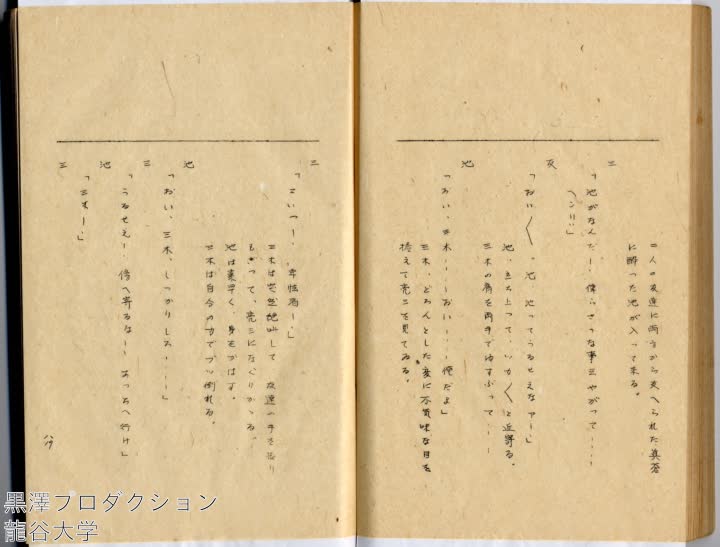 二人の友達に両方から支へられた真蒼
に酔った池が入って来る。
三
「池がなんだ!、偉らさうな事云やがって‥‥
ヘン!!」
友
「おい〱、池、池ってうるせえなァー」
池、立ち上って、ツカ〱と近寄る。
三木の肩を両手でゆすぶって‥‥
池
「おい、三木‥‥おい‥‥俺だよ」
三木、どろんとした変に不気味な目を
据えて亮二を見てゐる。
三
「こいつー、卑怯者ー」
三木は突然絶叫して 友達の手を振り
もぎって、亮二になぐりかゝる。
池は素早く、身をかはす。
三木は自分の力でブッ倒れる。
池
「おい、三木、しっかりしろ‥‥」
三
「うるせえー 傍へ寄るなー あっちへ行け」
池
「三木ー」
三
黒澤プロダクション
龍谷大学